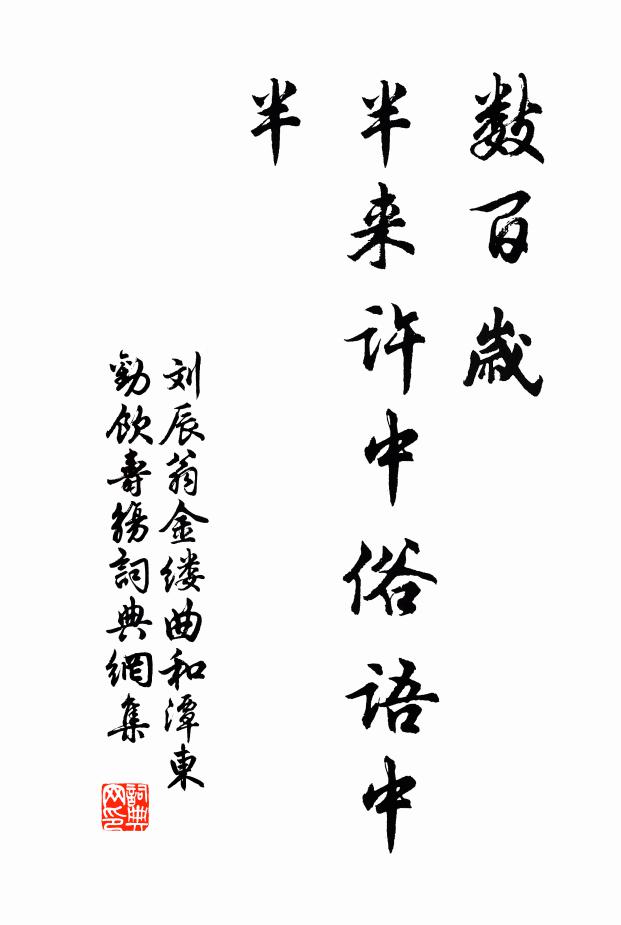 数百歲
半来许中俗语中
半
刘辰翁金缕曲和潭東
勸飲壽觴詞典網集
詞典
网印